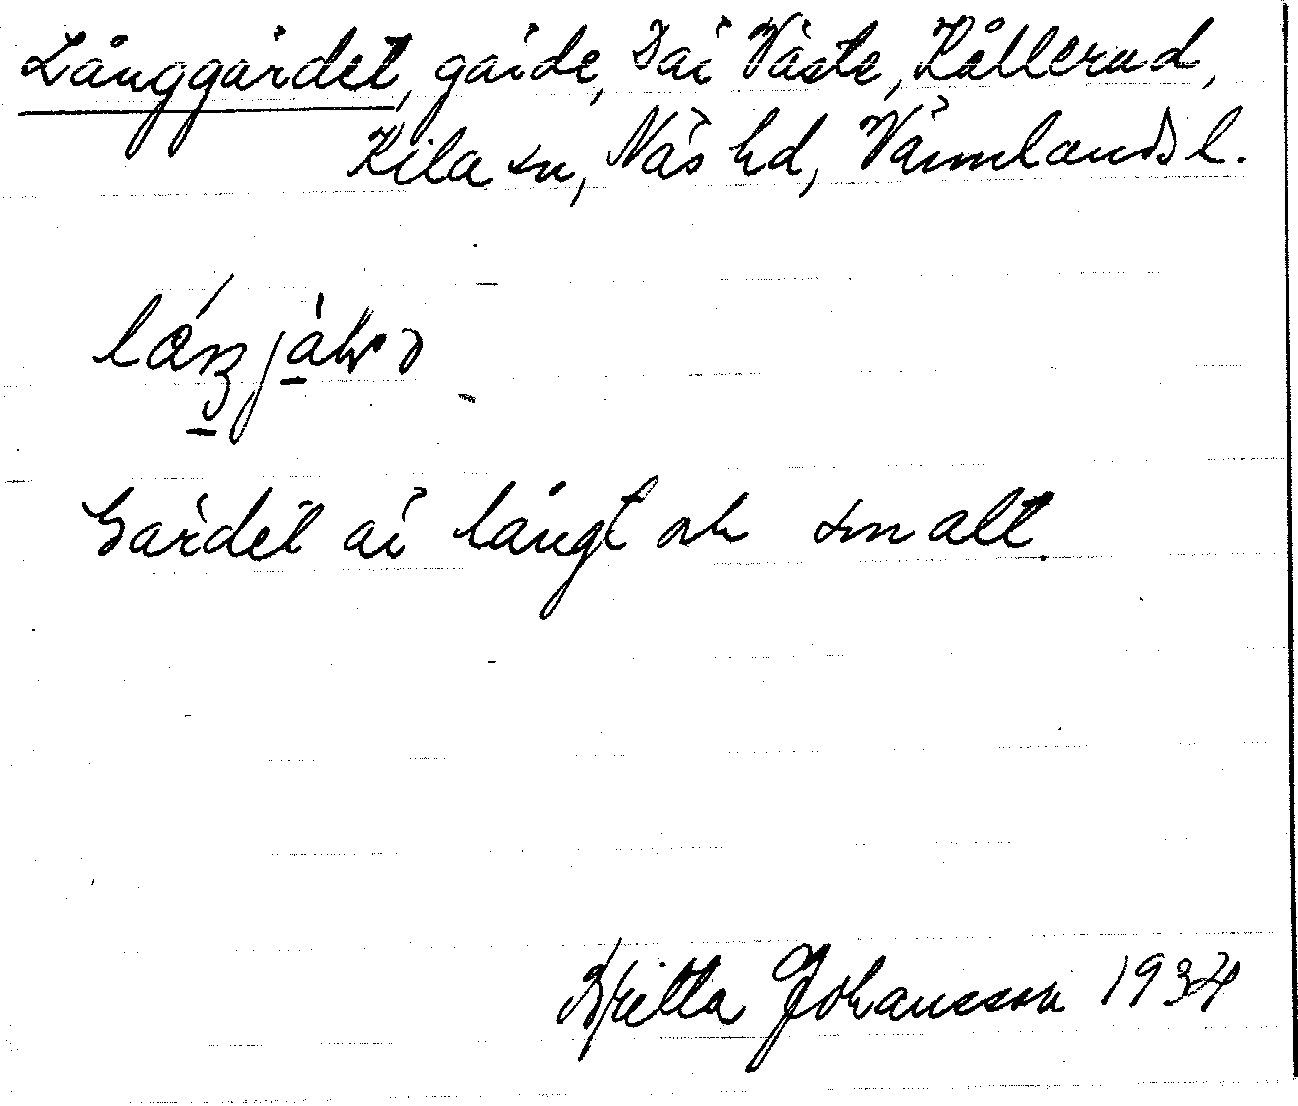 Långgärdet, gärde, Där Väste, Kållerud,
Kila sn, Näs hd, Värmlands l.
Gärdet är långt och smalt.
Britta Johansson 1934